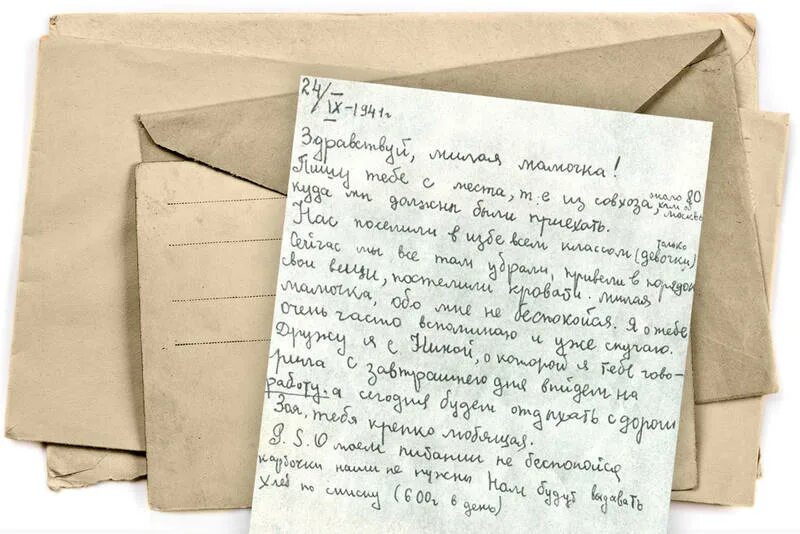 24/IX-1941г
Здравствуй, милая мамочка!
Пишу тебе с места, т.е из совхоза, около 80 клм. от Москвы
куда мы должны были приехать.
Нас поселили в избе всем классом (только девочки)
Сейчас мы все там убрали, привели в порядок
свои вещи, постелили кровати. Милая
мамочка, обо мне не беспокойся. Я о тебе
очень часто вспоминаю и уже скучаю.
Дружу я с Ниной, о которой я тебе гово-
рила с завтрашнего дня выйдем на
работу, а сегодня будем отдыхать с дороги
Зоя, тебя крепко любящая.
P.S. О моем питании не беспокойся
карточки наши не нужны Нам будут выдавать
хлеб по списку (600г в день)